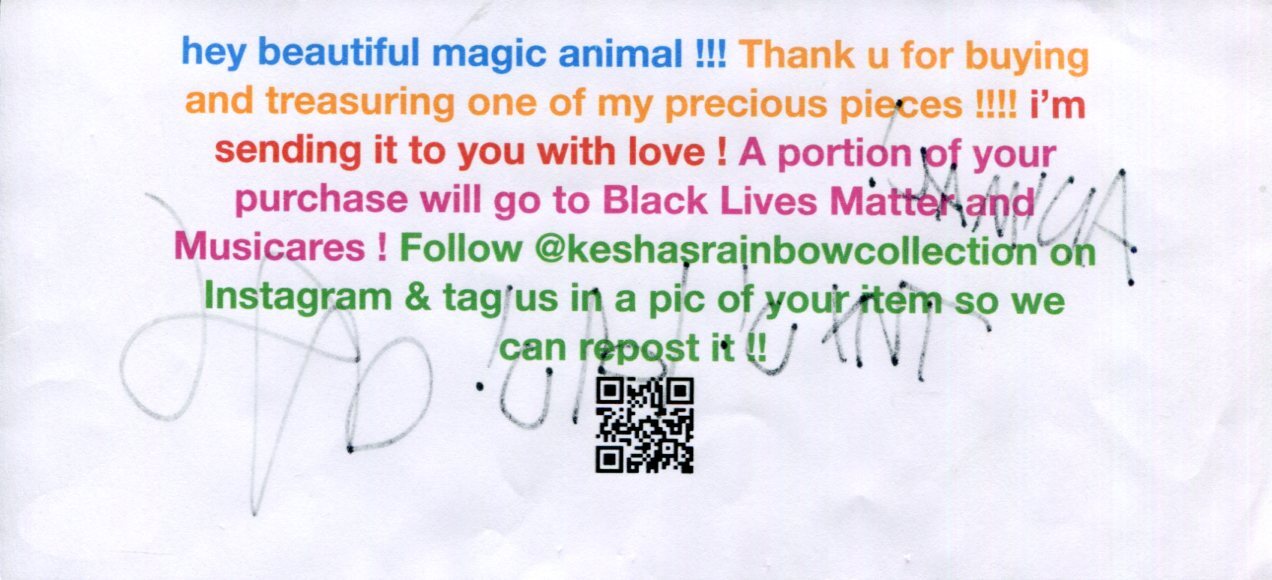 hey beautiful magic animal !!! Thank u for buying
and treasuring one of my precious pieces !!!! i’m
sending it to you with love ! A portion of your
purchase will go to Black Lives Matter and
Musicares ! Follow @keshasrainbowcollection on
Instagram & tag us in a pic of your item so we
can repost it !!